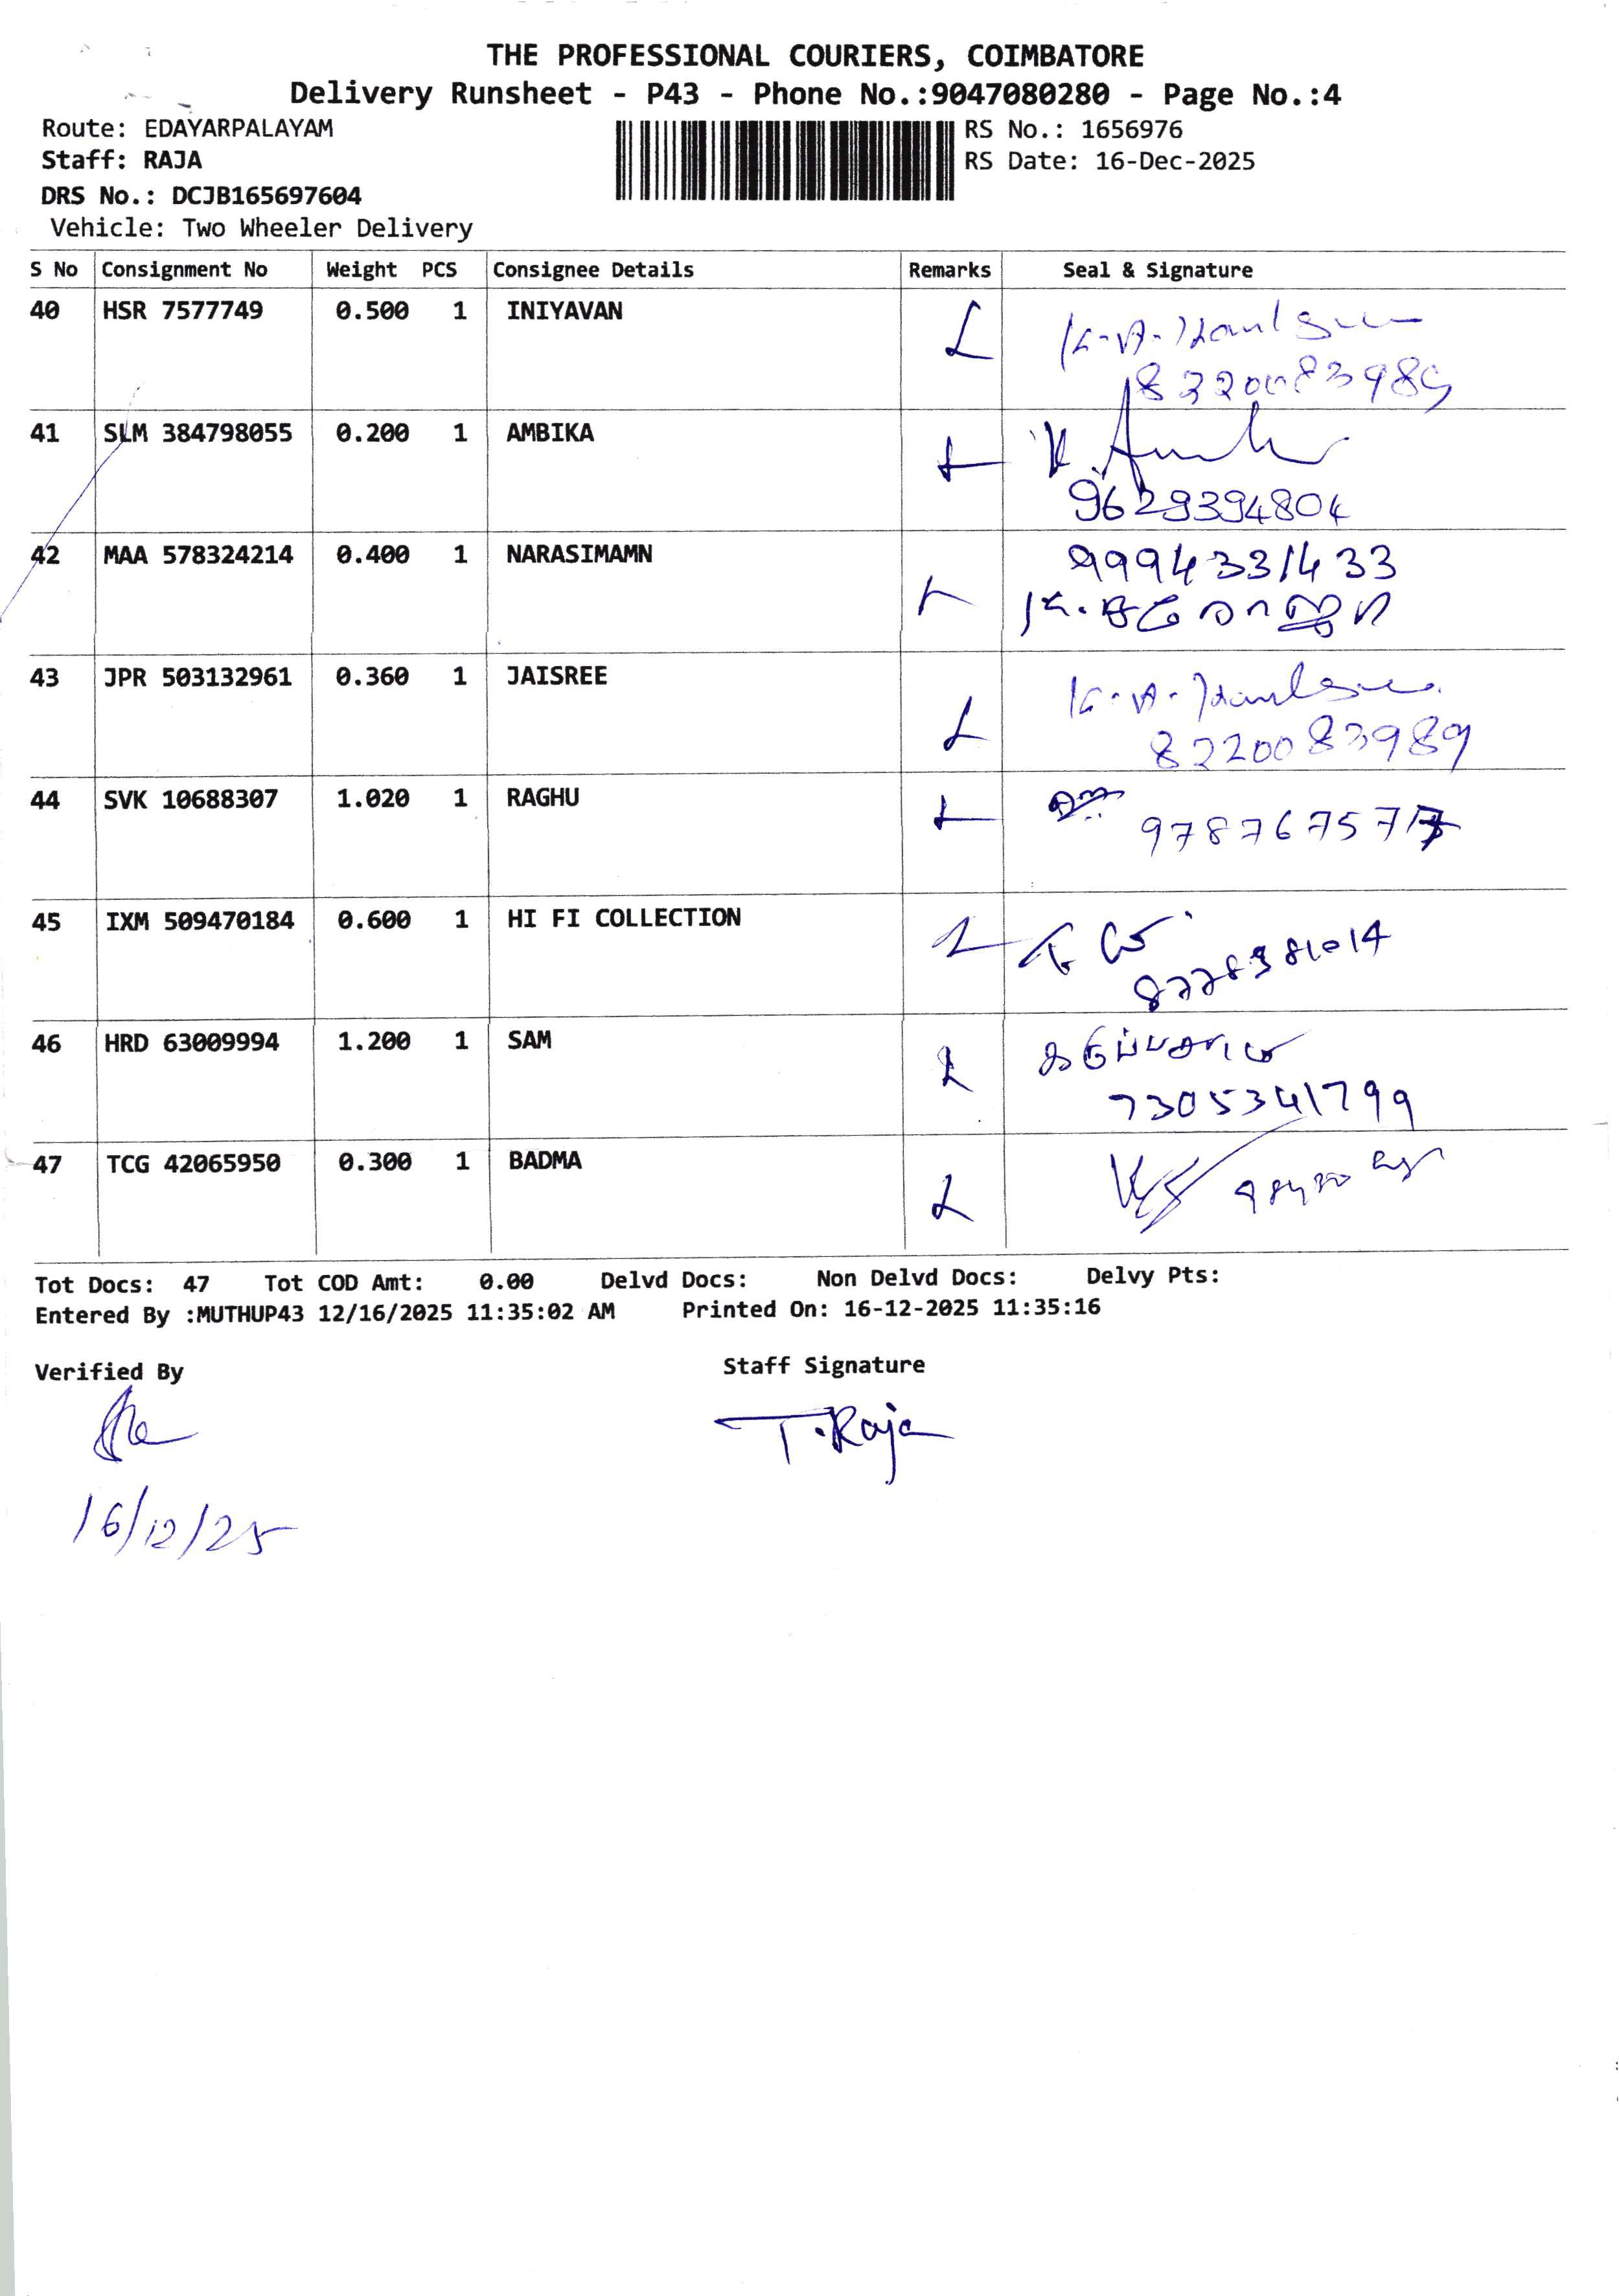 THE PROFESSIONAL COURIERS, COIMBATORE
Delivery Runsheet - P43 - Phone No.:9047080280 - Page No.:4
Route: EDAYARPALAYAM
RS No.: 1656976
Staff: RAJA
RS Date: 16-Dec-2025
DRS No.: DCJB165697604
Vehicle: Two Wheeler Delivery
S No Consignment No Weight PCS Consignee Details Remarks Seal & Signature
40 HSR 7577749 0.500 1 INIYAVAN
41 SLM 384798055 0.200 1 AMBIKA
9629394804
42 MAA 578324214 0.400 1 NARASIMAMN 9994331433
43 JPR 503132961 0.360 1 JAISREE
8220083989
44 SVK 10688307 1.020 1 RAGHU
45 IXM 509470184 0.600 1 HI FI COLLECTION
46 HRD 63009994 1.200 1 SAM
7305341799
47 TCG 42065950 0.300 1 BADMA
Tot Docs: 47 Tot COD Amt: 0.00 Delvd Docs: Non Delvd Docs: Delvy Pts:
Entered By :MUTHUP43 12/16/2025 11:35:02 AM Printed On: 16-12-2025 11:35:16
Verified By Staff Signature
T.Raja
16/12/25